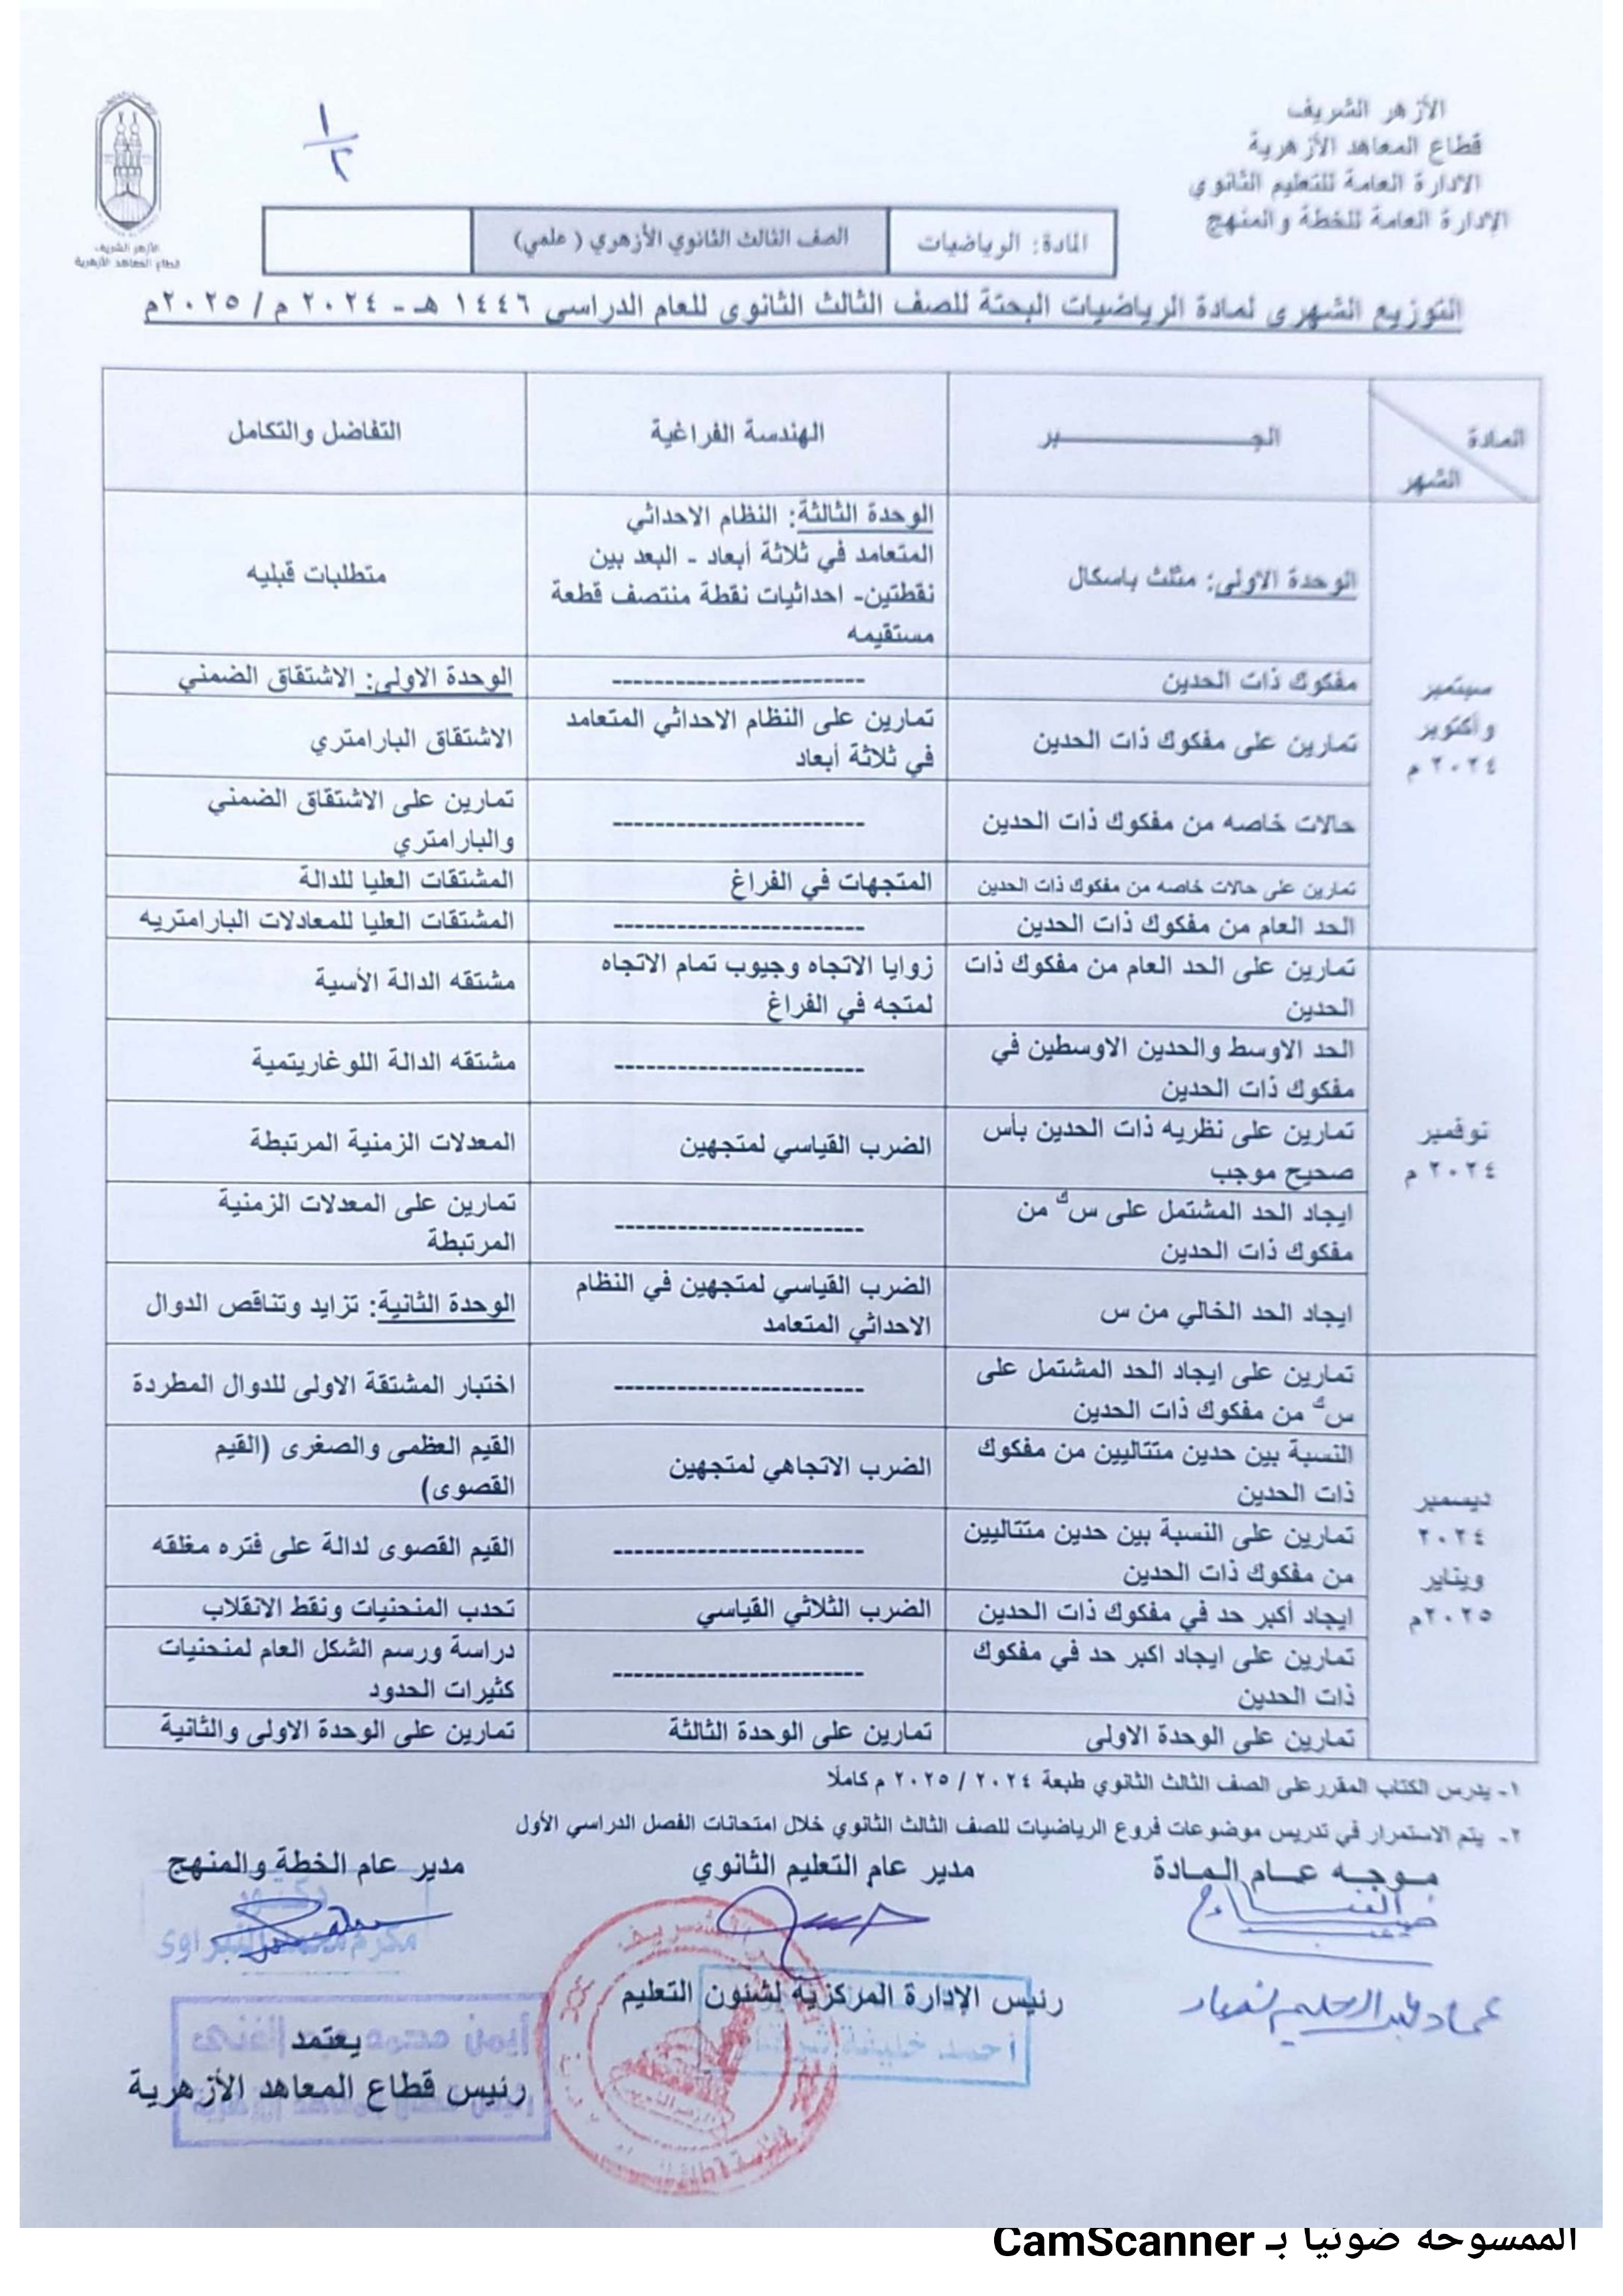 الأزهر الشريف
قطاع المعاهد الأزهرية
الادارة العامة للتعليم الثانوي
الإدارة العامة للخطة والمنهج
١
٢
الأزهر الشريف
قطاع المعاهد الأزهرية
المادة: الرياضيات
الصف الثالث الثانوي الأزهري ( علمي)
التوزيع الشهرى لمادة الرياضيات البحتة للصف الثالث الثانوى للعام الدراسى ١٤٤٦ هـ - ٢٠٢٤ م / ٢٠٢٥م
المادة
الشهر
الجــــــــــبر
الهندسة الفراغية
التفاضل والتكامل
سبتمبر
وأكتوبر
٢٠٢٤ م
الوحدة الاولى: مثلث باسكال
الوحدة الثالثة: النظام الاحداثي
المتعامد في ثلاثة أبعاد - البعد بين
نقطتين- احداثيات نقطة منتصف قطعة
مستقيمه
متطلبات قبليه
مفكوك ذات الحدين
------------------------
الوحدة الاولى: الاشتقاق الضمني
تمارين على مفكوك ذات الحدين
تمارين على النظام الاحداثي المتعامد
في ثلاثة أبعاد
الاشتقاق البارامتري
حالات خاصه من مفكوك ذات الحدين
------------------------
تمارين على الاشتقاق الضمني
والبارامتري
تمارين على حالات خاصه من مفكوك ذات الحدين
المتجهات في الفراغ
المشتقات العليا للدالة
الحد العام من مفكوك ذات الحدين
------------------------
المشتقات العليا للمعادلات البارامتريه
نوفمبر
٢٠٢٤ م
تمارين على الحد العام من مفكوك ذات
الحدين
زوايا الاتجاه وجيوب تمام الاتجاه
لمتجه في الفراغ
مشتقه الدالة الأسية
الحد الاوسط والحدين الاوسطين في
مفكوك ذات الحدين
------------------------
مشتقه الدالة اللوغاريتمية
تمارين على نظريه ذات الحدين بأس
صحيح موجب
الضرب القياسي لمتجهين
المعدلات الزمنية المرتبطة
ايجاد الحد المشتمل على س ك من
مفكوك ذات الحدين
------------------------
تمارين على المعدلات الزمنية
المرتبطة
ايجاد الحد الخالي من س
الضرب القياسي لمتجهين في النظام
الاحداثي المتعامد
الوحدة الثانية: تزايد وتناقص الدوال
ديسمبر
٢٠٢٤
ويناير
٢٠٢٥م
تمارين على ايجاد الحد المشتمل على
س ك من مفكوك ذات الحدين
------------------------
اختبار المشتقة الاولى للدوال المطردة
النسبة بين حدين متتاليين من مفكوك
ذات الحدين
الضرب الاتجاهي لمتجهين
القيم العظمى والصغرى (القيم
القصوى)
تمارين على النسبة بين حدين متتاليين
من مفكوك ذات الحدين
------------------------
القيم القصوى لدالة على فتره مغلقه
ايجاد أكبر حد في مفكوك ذات الحدين
الضرب الثلاثي القياسي
تحدب المنحنيات ونقط الانقلاب
تمارين على ايجاد اكبر حد في مفكوك
ذات الحدين
------------------------
دراسة ورسم الشكل العام لمنحنيات
كثيرات الحدود
تمارين على الوحدة الاولى
تمارين على الوحدة الثالثة
تمارين على الوحدة الاولى والثانية
١- يدرس الكتاب المقرر على الصف الثالث الثانوي طبعة ٢٠٢٤ / ٢٠٢٥ م كاملًا
٢- يتم الاستمرار في تدريس موضوعات فروع الرياضيات للصف الثالث الثانوي خلال امتحانات الفصل الدراسي الأول
موجه عام المادة
مدير عام التعليم الثانوي
مدير عام الخطة والمنهج
دكتور
رئيس الإدارة المركزية لشئون التعليم
أحمد خليفة
يعتمد
رئيس قطاع المعاهد الأزهرية
الممسوحة ضوئيا بـ CamScanner